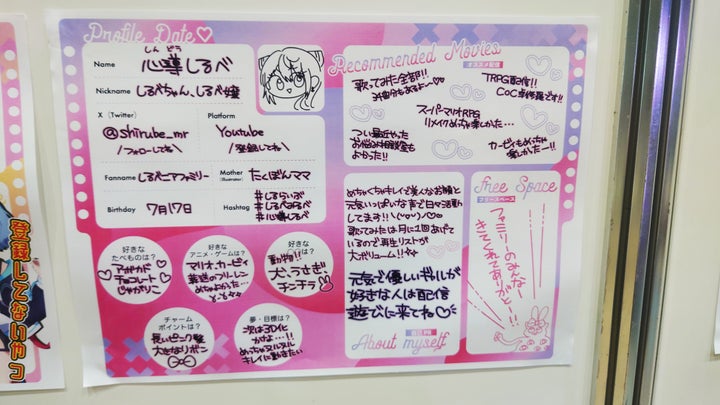 Profile Date♡
Name
しん どう
心導しるべ
Nickname
しるべちゃん、しるべ嬢
X (Twitter)
@shirube_mr
\フォローしてね/
Platform
Youtube
\登録してね/
Fanname
しるべニアファミリー
Mother
(Illustrator)
たくぼんママ
Birthday
7月17日
Hashtag
#しるらいぶ
#しるべみるべ
#心導しるべ
好きな
たべものは?
アボカド
チョコレート
じゃがりこ
好きな
アニメ・ゲームは?
マリオ、カービィ
葬送のフリーレン
めちゃよかった…
好きな
動物は?
犬、うさぎ
チンチラ
チャーム
ポイントは?
長いピンク髪
大きなリボン
夢・目標は?
次は3D化
かけぬ…!!
めっちゃヌルヌル
キレイに動きたい
Recommended Movies
オススメ配信
歌ってみた全部!!
TRPG配信!!
CoC卓修羅です!!
スーパーマリオRPG
リメイクめっちゃ楽しかった…
つい最近やった
お悩み相談室も
よかった!!
カービィもめっちゃ
楽しかったー!!
めちゃくちゃキレイで美人なお顔と
元気いっぱいな声で日々活動
してます!!
歌ってみたは月に1回あげて
いるので再生リストが
大ボリューム!!
元気で優しいギルが
好きな人は配信
遊びに来てね♡
自己PR
About myself
Free Space
フリースペース
ファミリーのみんなー
きてくれてありがとー!!
登録してないヤツ